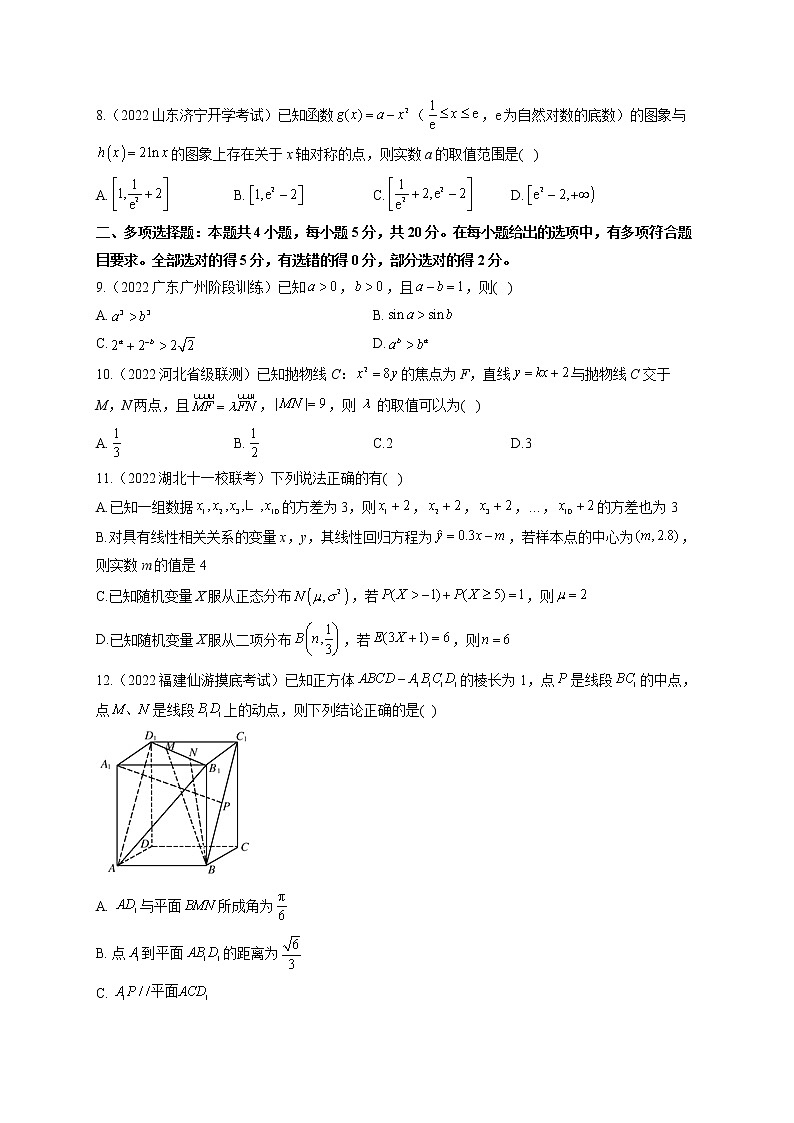 8.（2022山东济宁开学考试）已知函数 g(x)=a−x²（1/e≤x≤e，e为自然对数的底数）的图象与
h(x)=2ln x 的图象上存在关于x轴对称的点，则实数a的取值范围是( )
A.[1,1/e²+2] B.[1,e²−2] C.[1/e²+2,e²−2] D.[e²−2,+∞)
二、多项选择题：本题共4小题，每小题5分，共20分。在每小题给出的选项中，有多项符合题
目要求。全部选对的得5分，有选错的得0分，部分选对的得2分。
9.（2022广东广州阶段训练）已知a>0，b>0，且a−b=1，则( )
A.a³>b³ B.sin a>sin b
C.2ᵃ+2⁻ᵇ>2√2 D.aᵇ>bᵃ
10.（2022河北省级联测）已知抛物线C：x²=8y的焦点为F，直线y=kx+2与抛物线C交于
M，N两点，且MF=λFN，|MN|=9，则 λ 的取值可以为( )
A.1/3 B.1/2 C.2 D.3
11.（2022湖北十一校联考）下列说法正确的有( )
A.已知一组数据x₁,x₂,x₃,∟,x₁₀的方差为3，则x₁+2，x₂+2，x₃+2，…，x₁₀+2的方差也为3
B.对具有线性相关关系的变量x，y，其线性回归方程为ŷ=0.3x−m，若样本点的中心为(m,2.8)，
则实数m的值是4
C.已知随机变量X服从正态分布N(μ,σ²)，若P(X>−1)+P(X≥5)=1，则μ=2
D.已知随机变量X服从二项分布B(n,1/3)，若E(3X+1)=6，则n=6
12.（2022福建仙游摸底考试）已知正方体ABCD−A₁B₁C₁D₁的棱长为1，点P是线段BC₁的中点，
点M、N是线段B₁D₁上的动点，则下列结论正确的是( )
D₁ M N C₁
A₁ B₁
P
D C
A B
A. AD₁与平面BMN所成角为π/6
B. 点A₁到平面AB₁D₁的距离为√6/3
C. A₁P//平面ACD₁